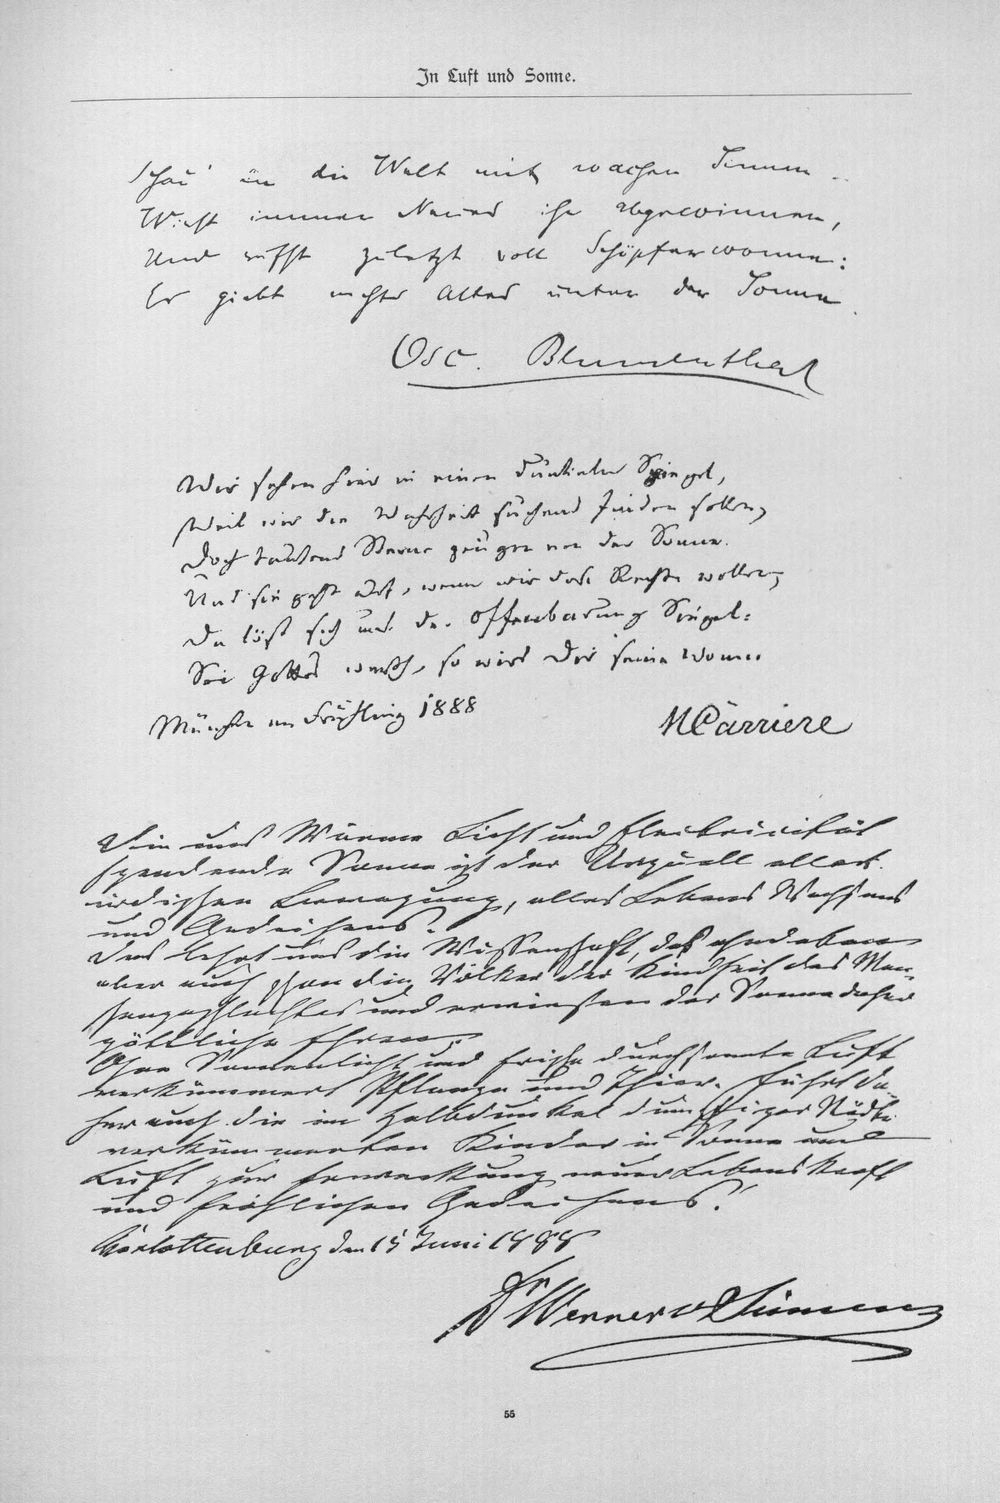 In Luft und Sonne.
Schau' in die Welt mit wachen Sinnen ..
Wirst immer Neues ihr abgewinnen,
Und rufst zuletzt voll Schöpferwonne:
Es giebt nichts Altes unter der Sonne.
Osc. Blumenthal
Wir sehen hier in einen dunkeln Spiegel,
Weil wir die Wahrheit suchend finden sollen,
Doch tausend Sterne zeugen von der Sonne.
Und sie geht auf, wenn wir das Rechte wollen,
Da löst sich uns der Offenbarung Siegel:
Sei Gottes , so wird Dir seine Wonne
München im Frühling 1888
M Carriere
Die uns Wärme Licht und Electricität
spendende Sonne ist der Urquell aller
irdischen Bewegung, alles Lebens Wachsens
und Gedeihens.
Das lehrt uns die Wissenschaft, das ahndeten
aber auch schon die Völker der Kindheit des Men-
schengeschlechtes und erwiesen der Sonne daher
göttliche Ehren.
Ohne Sonnenlicht und frische durchsonnte Luft
verkümmert Pflanze und Thier. Führt da
her auch die im Halbdunkel dumpfiger Städte
verkümmerten Kinder in Sonne und
Luft zur Erweckung neuer Lebenskraft
und fröhlichen Gedeihens!
Charlottenburg den 15 Juni 1888
Dr Werner v Siemens
55